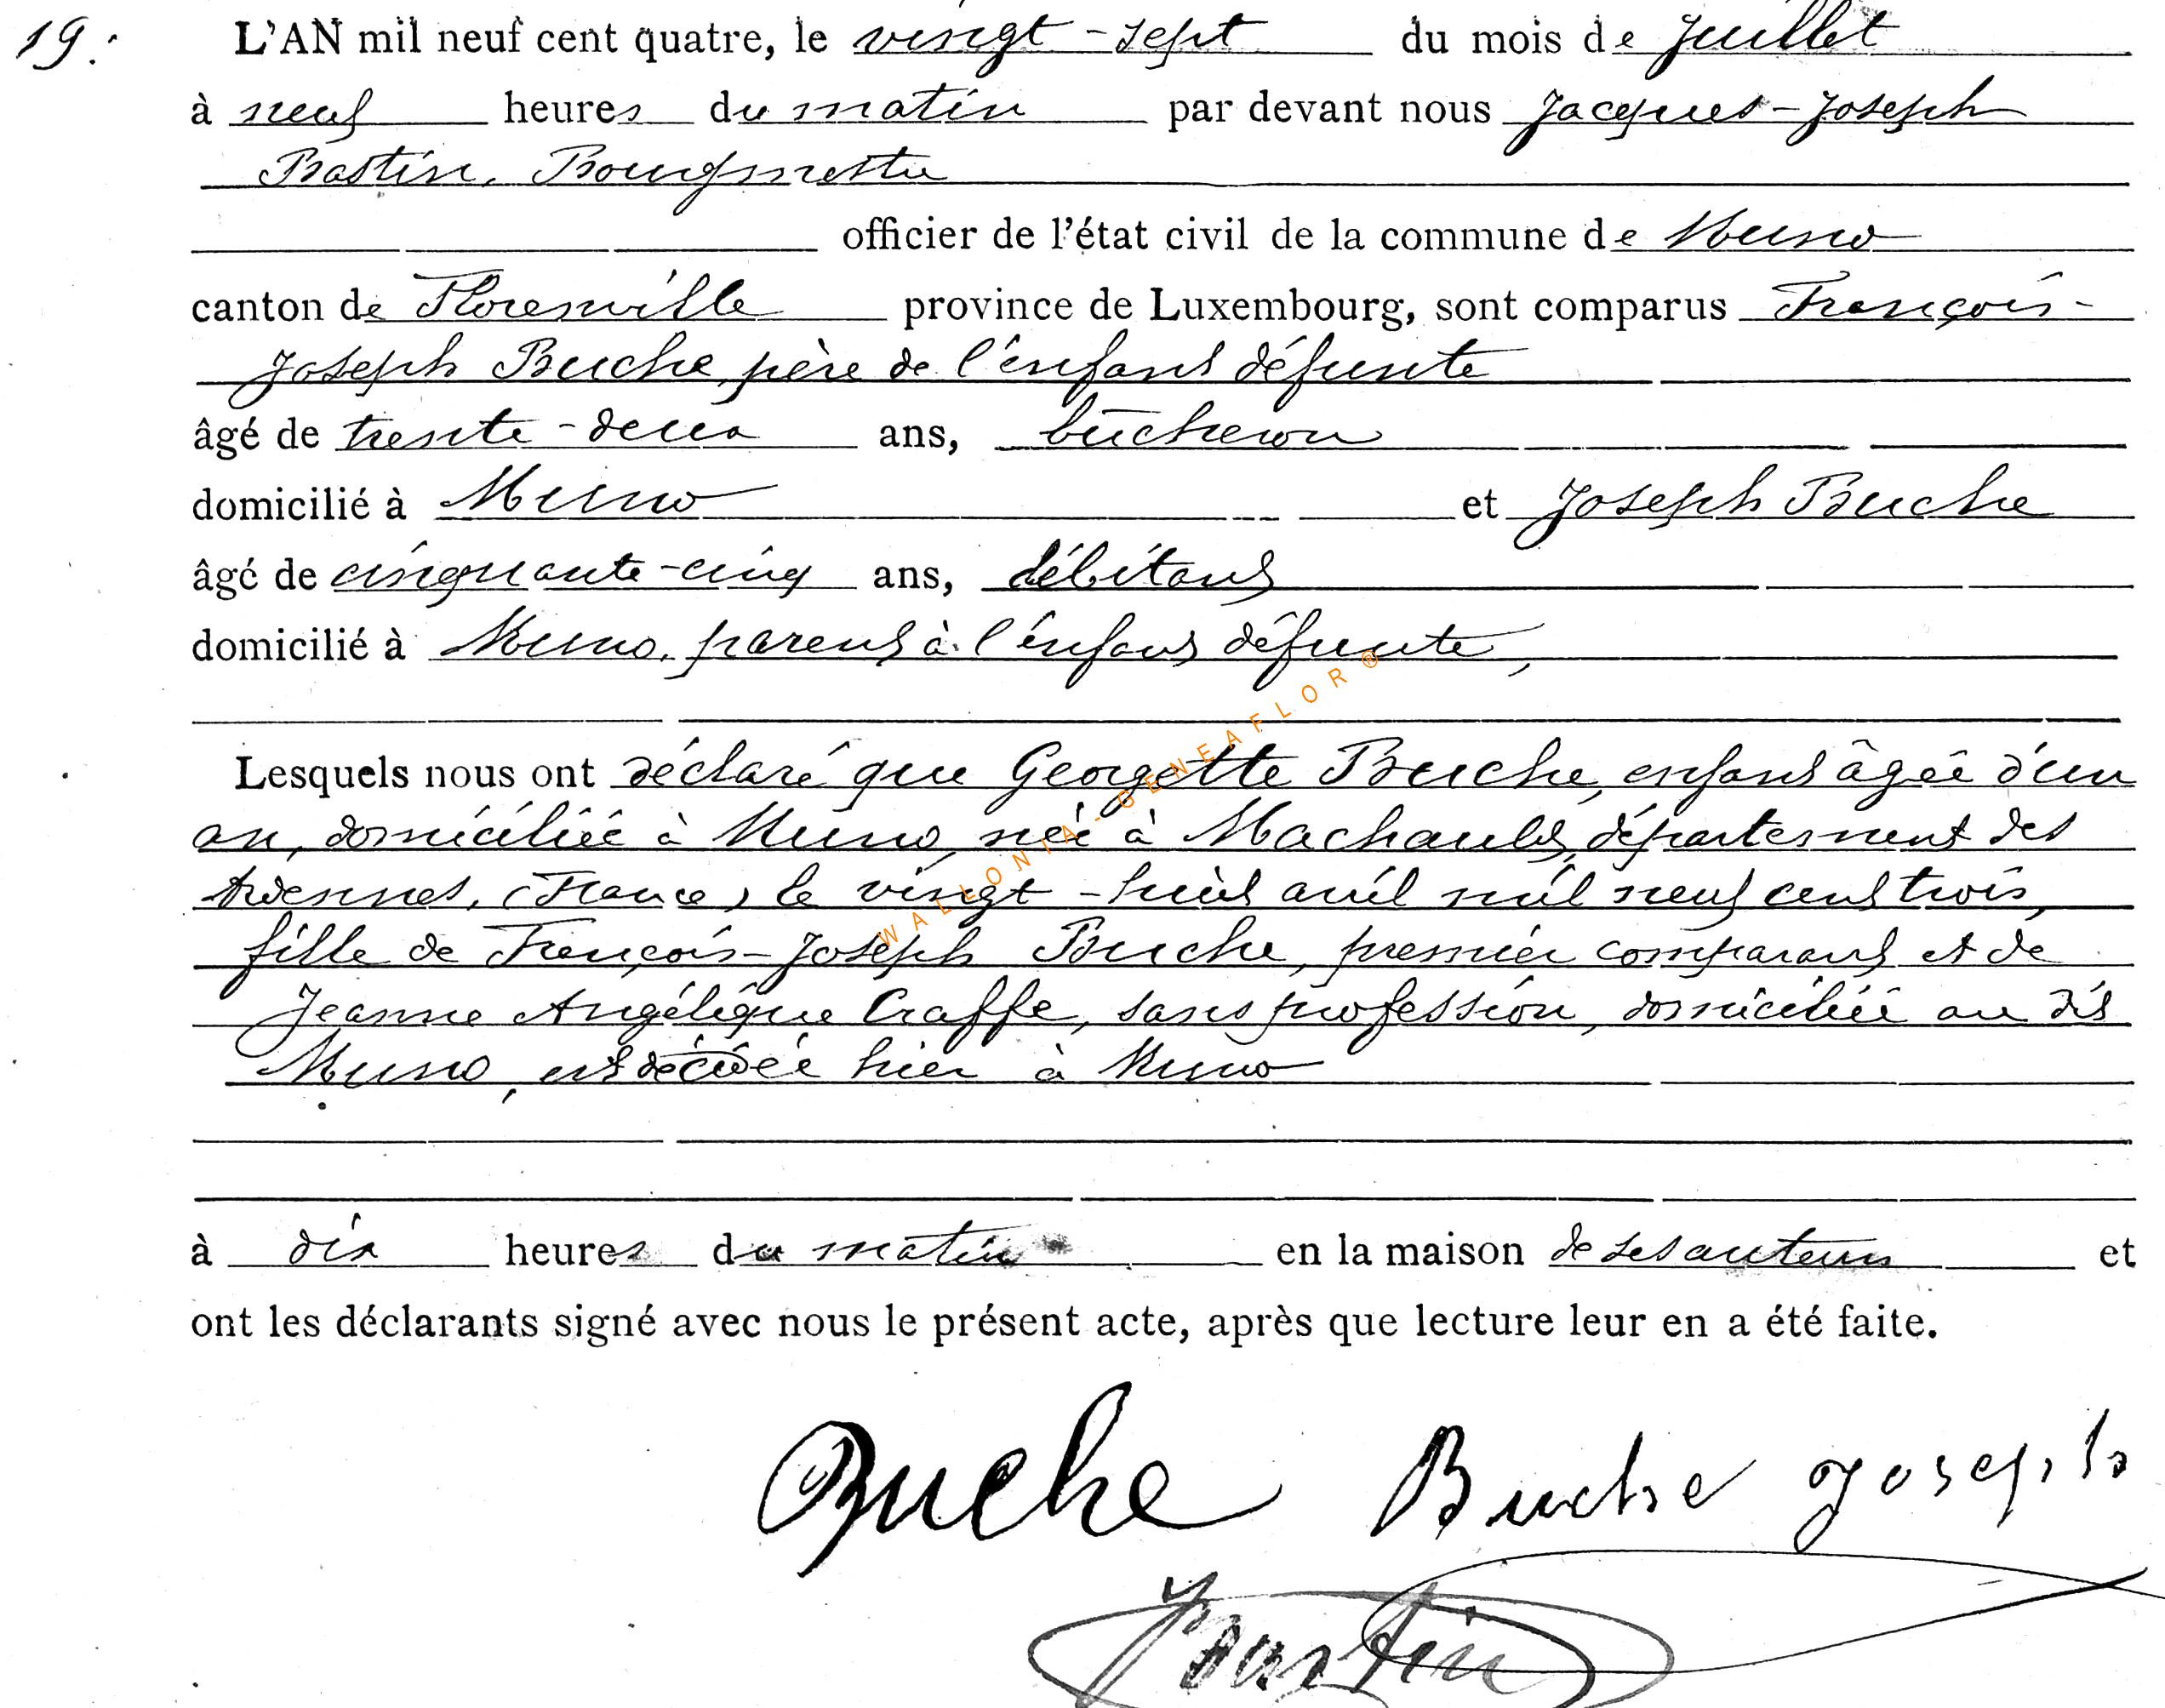 19.
L'AN mil neuf cent quatre, le vingt-sept du mois de Juillet
à neuf heures du matin par devant nous Jacques-Joseph
Bastin, Bourgmestre
officier de l'état civil de la commune de Muno
canton de Florenville province de Luxembourg, sont comparus François-
Joseph Buche, père de l'enfant défunte
âgé de trente-deux ans, bûcheron
domicilié à Muno et Joseph Buche
âgé de cinquante-cinq ans, débitant
domicilié à Muno, parent à l'enfant défunte,
Lesquels nous ont déclaré que Georgette Buche, enfant âgée d'un
an, domiciliée à Muno, née à Machault, département des
Ardennes, (France) le vingt-huit avril mil neuf cent trois,
fille de François-Joseph Buche, premier comparant et de
Jeanne Angélique Craffe, sans profession, domiciliée au dit
Muno, est décédée hier à Muno
à dix heures du matin en la maison de ses auteurs et
ont les déclarants signé avec nous le présent acte, après que lecture leur en a été faite.
Buche Buche Joseph
Bastin
WALLONIA-GENEAFLOR®